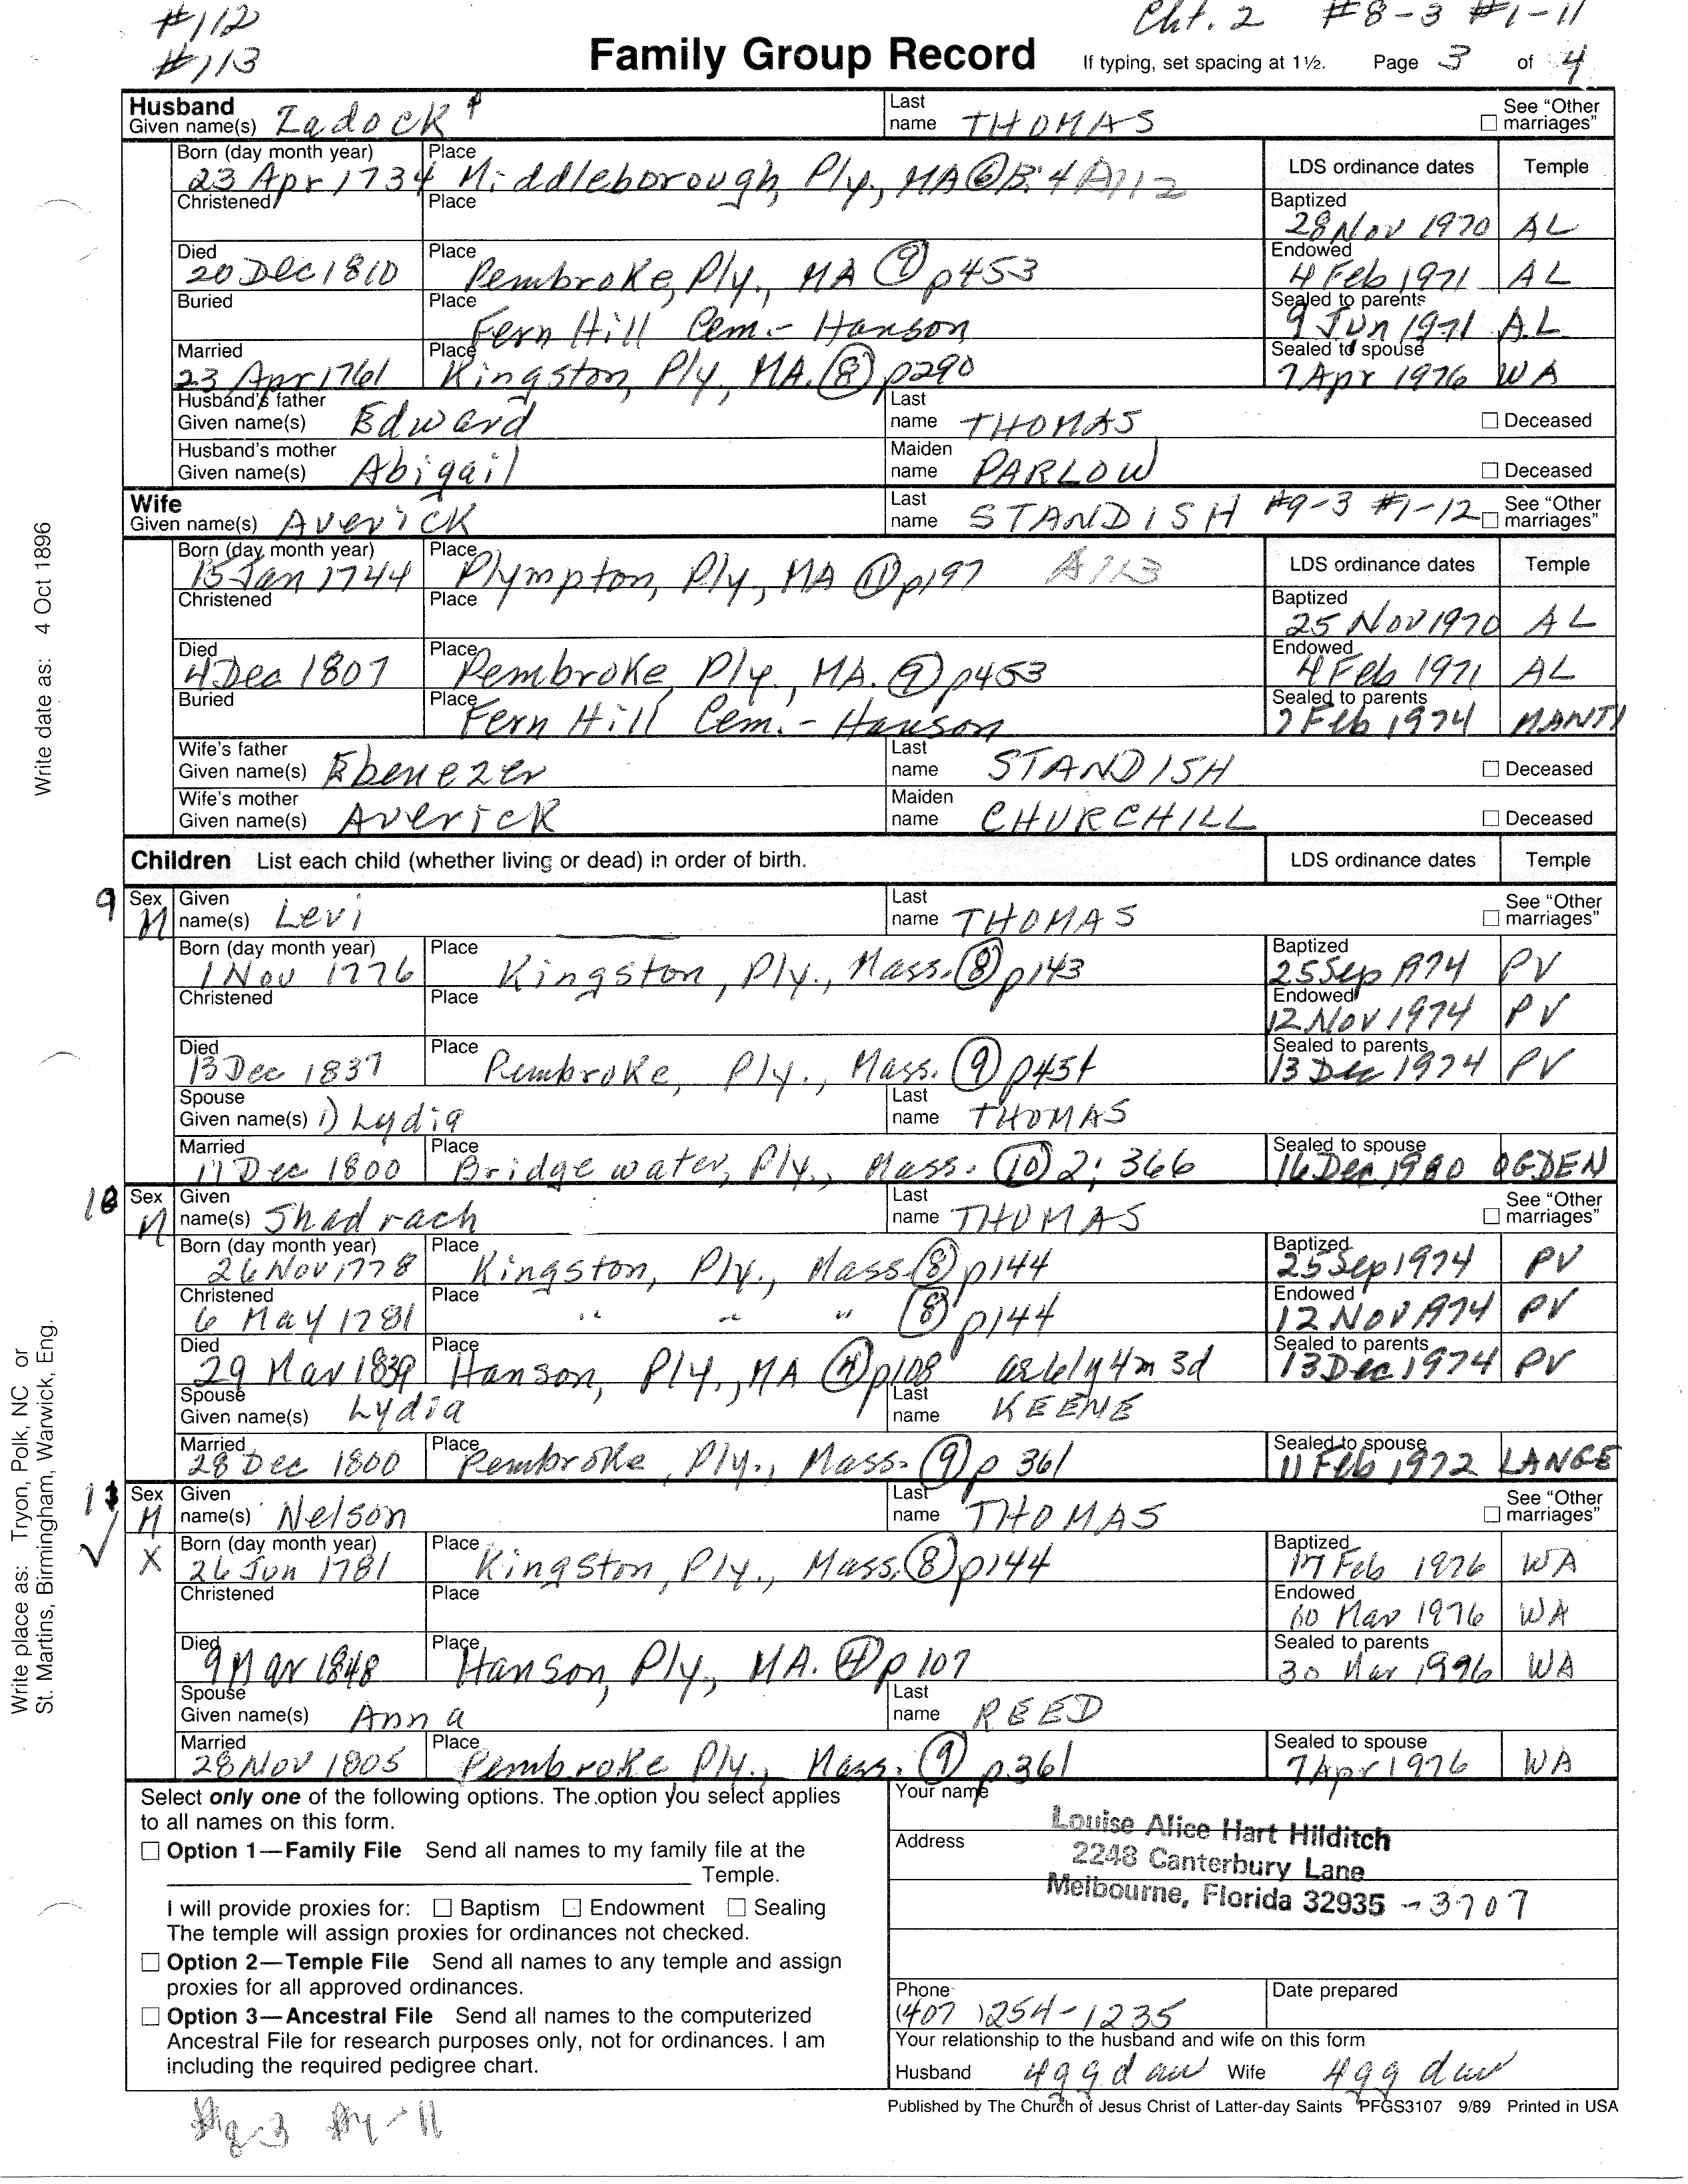 #112 Cht. 2 #8-3 #1-11
#113
Family Group Record If typing, set spacing at 1½. Page 3 of 4
Husband
Given name(s) Zadock Last name THOMAS See "Other marriages"
Born (day month year) Place LDS ordinance dates Temple
23 Apr 1734 Middleborough, Ply., MA (6) B:4 A112
Christened Place Baptized
28 Nov 1970 AL
Died Place Endowed
20 Dec 1810 Pembroke, Ply., MA (9) p453 4 Feb 1971 AL
Buried Place Sealed to parents
Fern Hill Cem.- Hanson 9 Jun 1971 AL
Married Place Sealed to spouse
23 Apr 1761 Kingston, Ply, MA. (8) p290 7 Apr 1976 WA
Husband's father
Given name(s) Edward Last name THOMAS Deceased
Husband's mother
Given name(s) Abigail Maiden name PARLOW Deceased
Wife
Given name(s) Averick Last name STANDISH #9-3 #1-12 See "Other marriages"
Born (day month year) Place LDS ordinance dates Temple
15 Jan 1744 Plympton, Ply, MA (11) p197 A113
Christened Place Baptized
25 Nov 1970 AL
Died Place Endowed
4 Dec 1807 Pembroke, Ply., MA. (9) p453 4 Feb 1971 AL
Buried Place Sealed to parents
Fern Hill Cem. - Hanson 7 Feb 1974 MANTI
Wife's father
Given name(s) Ebenezer Last name STANDISH Deceased
Wife's mother
Given name(s) Averick Maiden name CHURCHILL Deceased
Children List each child (whether living or dead) in order of birth. LDS ordinance dates Temple
9 Sex M Given name(s) Levi Last name THOMAS See "Other marriages"
Born (day month year) Place Baptized
1 Nov 1776 Kingston, Ply., Mass. (8) p143 25 Sep 1974 PV
Christened Place Endowed
12 Nov 1974 PV
Died Place Sealed to parents
13 Dec 1837 Pembroke, Ply., Mass. (9) p454 13 Dec 1974 PV
Spouse
Given name(s) 1) Lydia Last name THOMAS
Married Place Sealed to spouse
11 Dec 1800 Bridgewater, Ply., Mass. (10) 2; 366 16 Dec 1980 OGDEN
10 Sex M Given name(s) Shadrach Last name THOMAS See "Other marriages"
Born (day month year) Place Baptized
26 Nov 1778 Kingston, Ply., Mass (8) p144 25 Sep 1974 PV
Christened Place Endowed
6 May 1781 " " " (8) p144 12 Nov 1974 PV
Died Place Sealed to parents
29 Mar 1839 Hanson, Ply., MA (4) p108 13 Dec 1974 PV
Spouse
Given name(s) Lydia Last name KEENE
Married Place Sealed to spouse
28 Dec 1800 Pembroke, Ply., Mass. (9) p 361 11 Feb 1972 LANGE
Sex M Given name(s) Nelson Last name THOMAS See "Other marriages"
X Born (day month year) Place Baptized
26 Jun 1781 Kingston, Ply., Mass. (8) p144 17 Feb 1976 WA
Christened Place Endowed
10 Mar 1976 WA
Died Place Sealed to parents
9 Mar 1848 Hanson, Ply., MA. (4) p 107 30 Mar 1996 WA
Spouse
Given name(s) Anna Last name REED
Married Place Sealed to spouse
28 Nov 1805 Pembroke Ply., Mass. (9) p.361 7 Apr 1976 WA
Select only one of the following options. The option you select applies
to all names on this form.
Option 1—Family File Send all names to my family file at the
Temple.
I will provide proxies for: Baptism Endowment Sealing
The temple will assign proxies for ordinances not checked.
Option 2—Temple File Send all names to any temple and assign
proxies for all approved ordinances.
Option 3—Ancestral File Send all names to the computerized
Ancestral File for research purposes only, not for ordinances. I am
including the required pedigree chart.
Your name
Louise Alice Hart Hilditch
Address
2248 Canterbury Lane
Melbourne, Florida 32935 -3707
Phone Date prepared
(407) 254-1235
Your relationship to the husband and wife on this form
Husband 4ggdau Wife 4gg dau
Published by The Church of Jesus Christ of Latter-day Saints PFGS3107 9/89 Printed in USA
Write date as: 4 Oct 1896
Write place as: Tryon, Polk, NC or
St. Martins, Birmingham, Warwick, Eng.